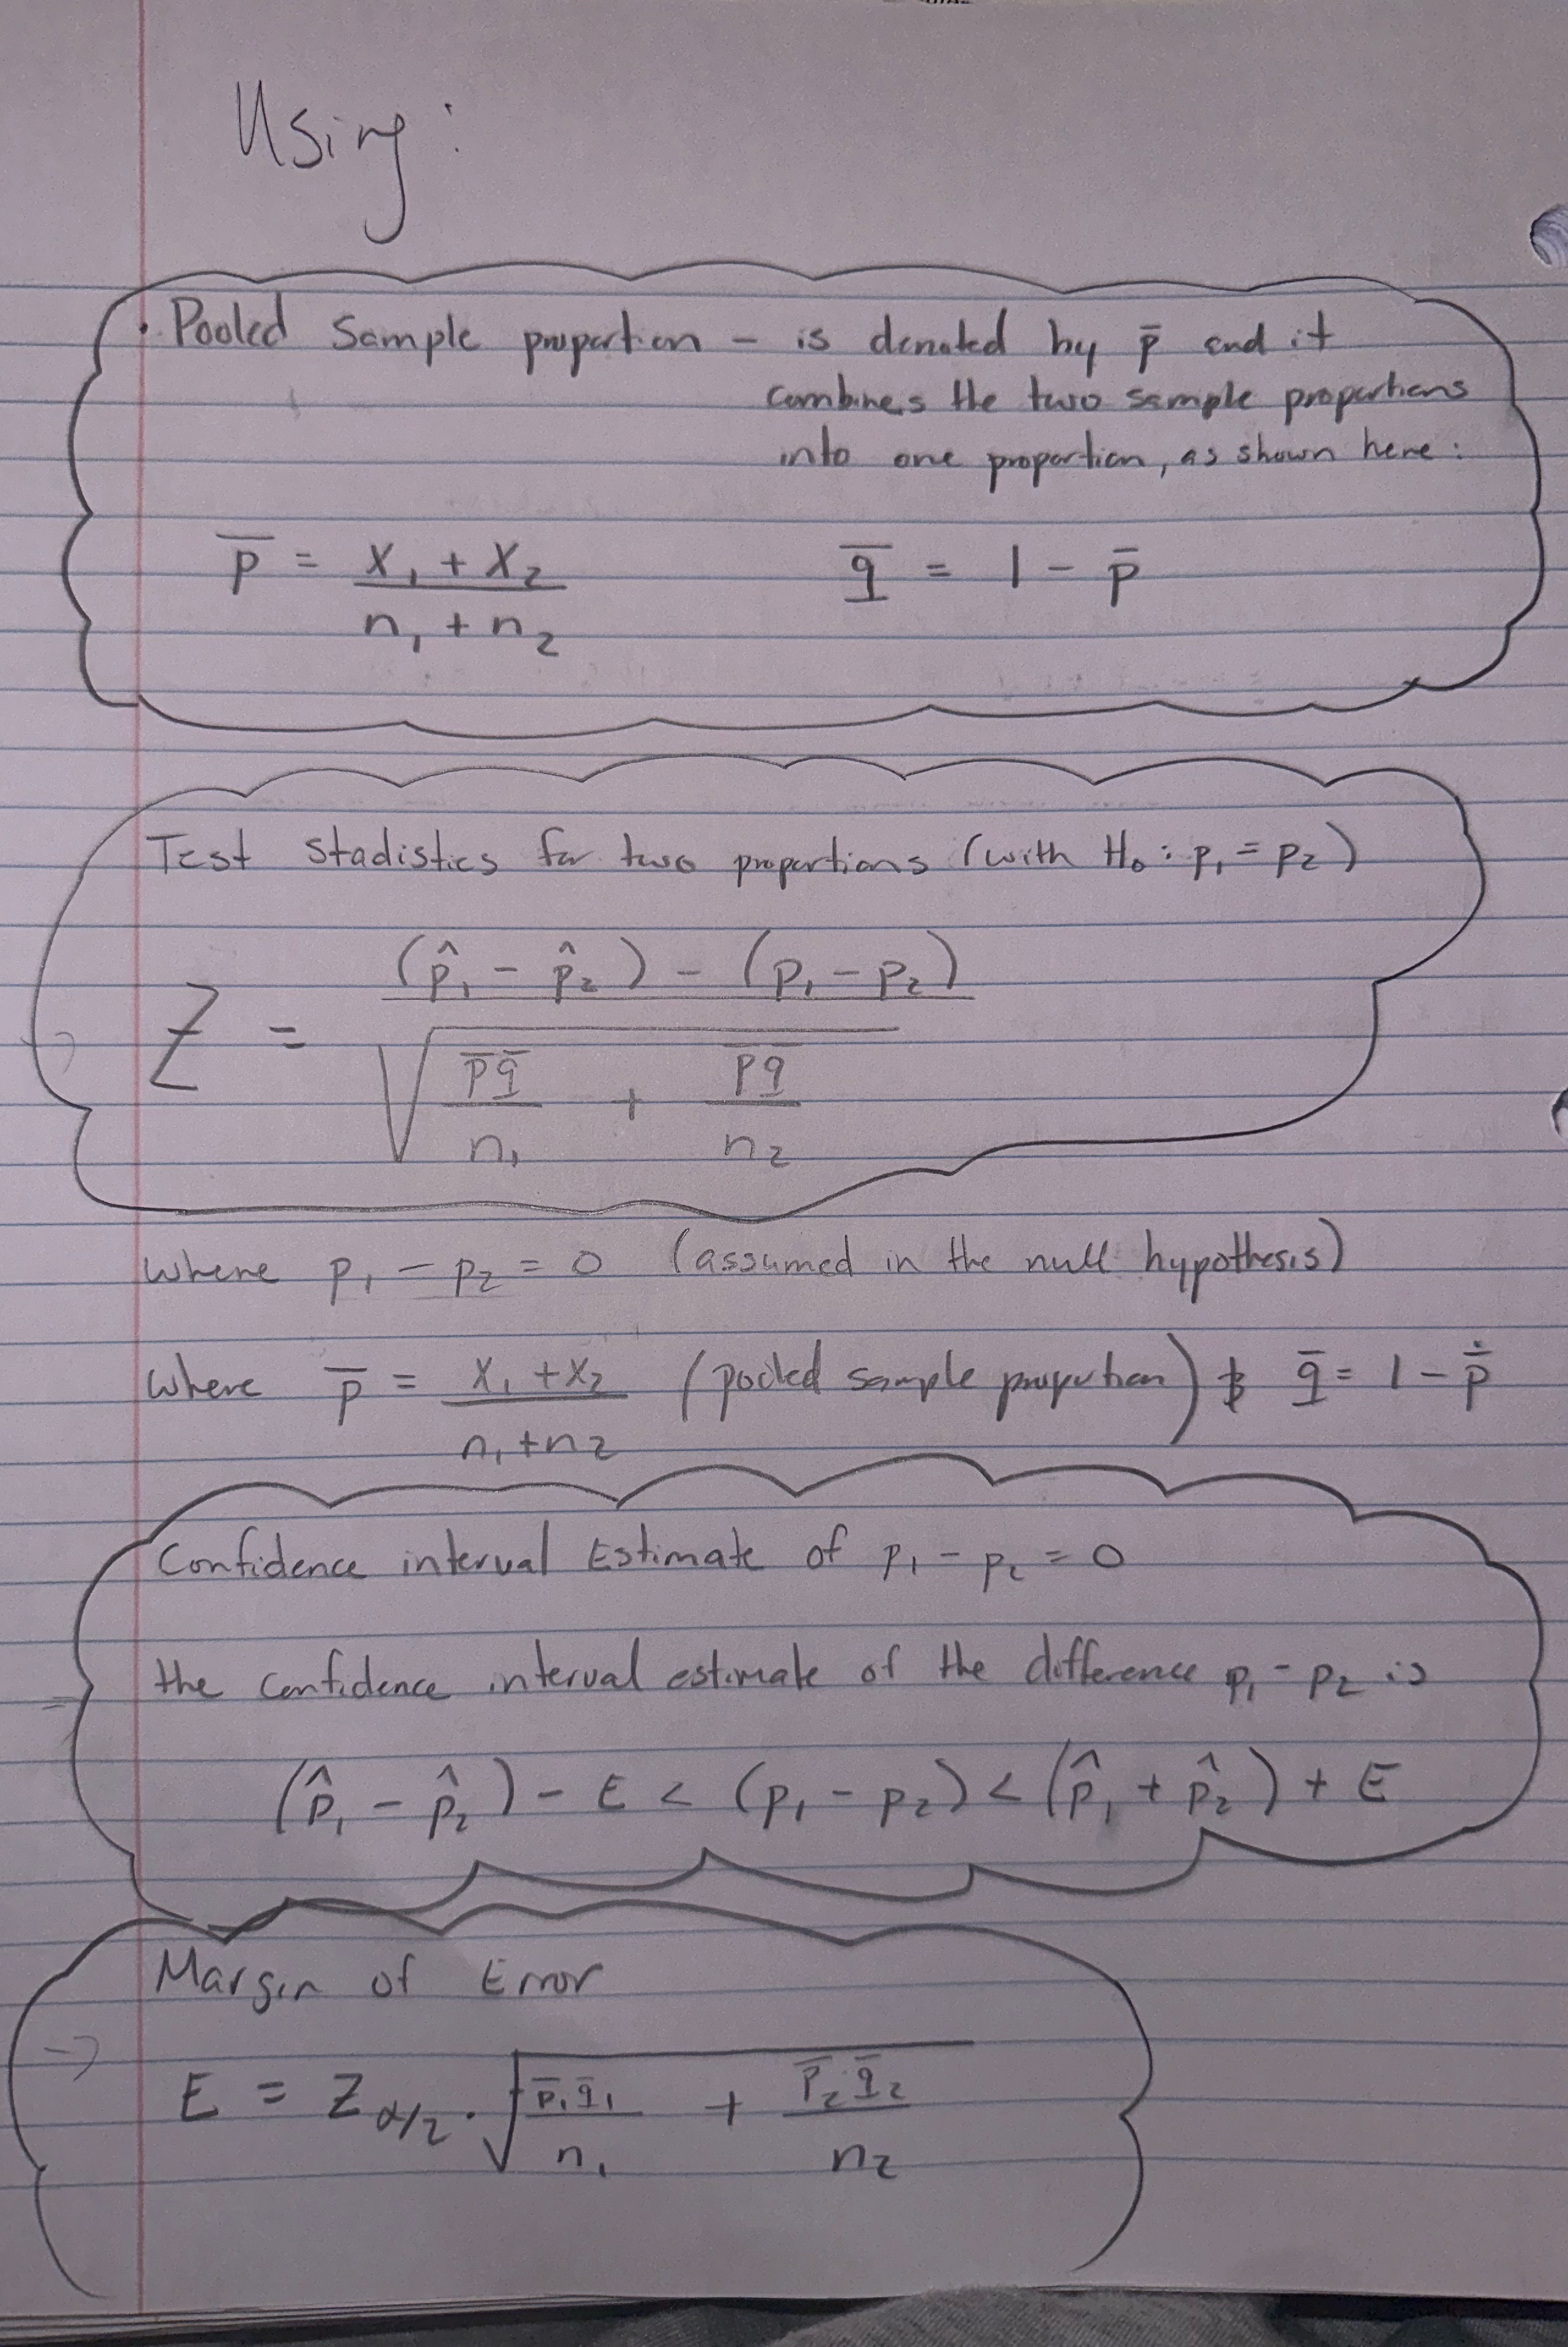 Using:
• Pooled Sample proportion – is denoted by p̄ and it
combines the two sample proportions
into one proportion, as shown here:
p̄ = (x₁ + x₂) / (n₁ + n₂)    q̄ = 1 - p̄
Test stadistics for two proportions (with H₀: p₁ = p₂)
Z = ((p̂₁ - p̂₂) - (p₁ - p₂)) / √(p̄q̄/n₁ + p̄q̄/n₂)
where p₁ - p₂ = 0 (assumed in the null hypothesis)
where p̄ = (x₁ + x₂) / (n₁ + n₂) (pooled sample proportion) & q̄ = 1 - p̄
Confidence interval Estimate of p₁ - p₂ = 0
the confidence interval estimate of the difference p₁ - p₂ is
(p̂₁ - p̂₂) - E < (p₁ - p₂) < (p̂₁ + p̂₂) + E
Margin of Error
→ E = Z α/2 · √(p̄₁q̄₁/n₁ + p̄₂q̄₂/n₂)